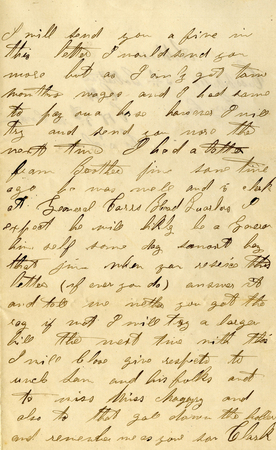 I will send you a five in
this letter I would send you
more but as I only got two
months wages and I had some
to pay on a horse however I will
try and send you more the
next time I had a letter
from Brother Jim some time
ago he was well and is clerk
at General Carrs Head Quarters I
expect he will likly be a General
him self some day
that Jim when you receive this
letter (if ever you do) answer it
and tell me wether you got the
if not I will try a larger
bill the next time with this
I will Close give respects to
uncle Sam and his folks and
to miss and
also to that gal down the hollow
and remember me as your son Clark